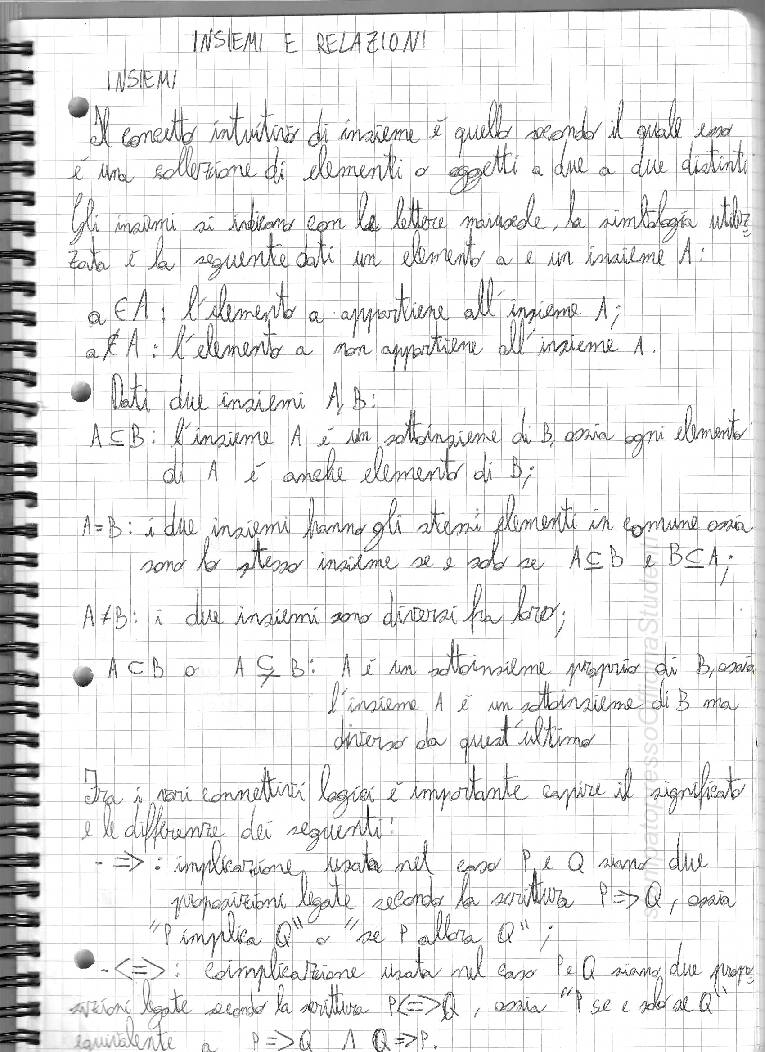 INSIEMI E RELAZIONI
INSIEMI
Il concetto intuitivo di insieme è quello secondo il quale esso
è una collezione di elementi o oggetti a due a due distinti
Gli insiemi si indicano con le lettere maiuscole, la simbologia utiliz-
zata è la seguente dati un elemento a e un insieme A:
a ∈ A: l'elemento a appartiene all'insieme A;
a ∉ A: l'elemento a non appartiene all'insieme A.
Dati due insiemi A, B:
A ⊆ B: l'insieme A è un sottoinsieme di B, ossia ogni elemento
di A è anche elemento di B;
A = B: i due insiemi hanno gli stessi elementi in comune ossia
sono lo stesso insieme se e solo se A ⊆ B e B ⊆ A;
A ≠ B: i due insiemi sono diversi fra loro;
A ⊂ B o A ⊊ B: A è un sottoinsieme proprio di B, ossia
l'insieme A è un sottoinsieme di B ma
diverso da quest'ultimo
Fra i vari connettivi logici è importante capire il significato
e le differenze dei seguenti:
- =>: implicazione, usata nel caso P e Q siano due
proposizioni legate secondo la scrittura P => Q, ossia
"P implica Q" o "se P allora Q";
- <=>: coimplicazione usata nel caso P e Q siano due propo-
sizioni legate secondo la scrittura P <=> Q, ossia "P se e solo se Q"
equivalente a P => Q ∧ Q => P.